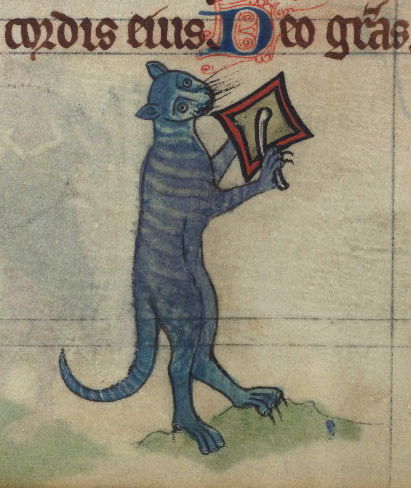 cordis eius Deo gr̄as